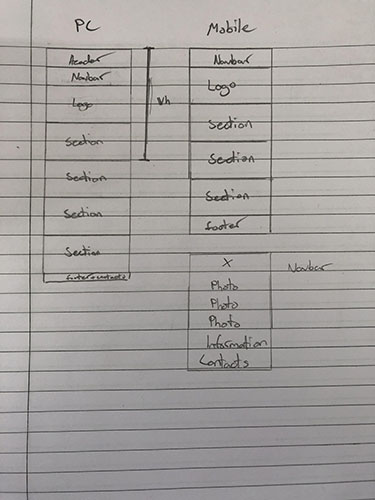 PC
Header
Navbar
Logo
Section
Section
Section
Section
footer+contacts
Vh
Mobile
Navbar
Logo
Section
Section
Section
footer
X
Photo
Photo
Photo
Information
Contacts
Navbar